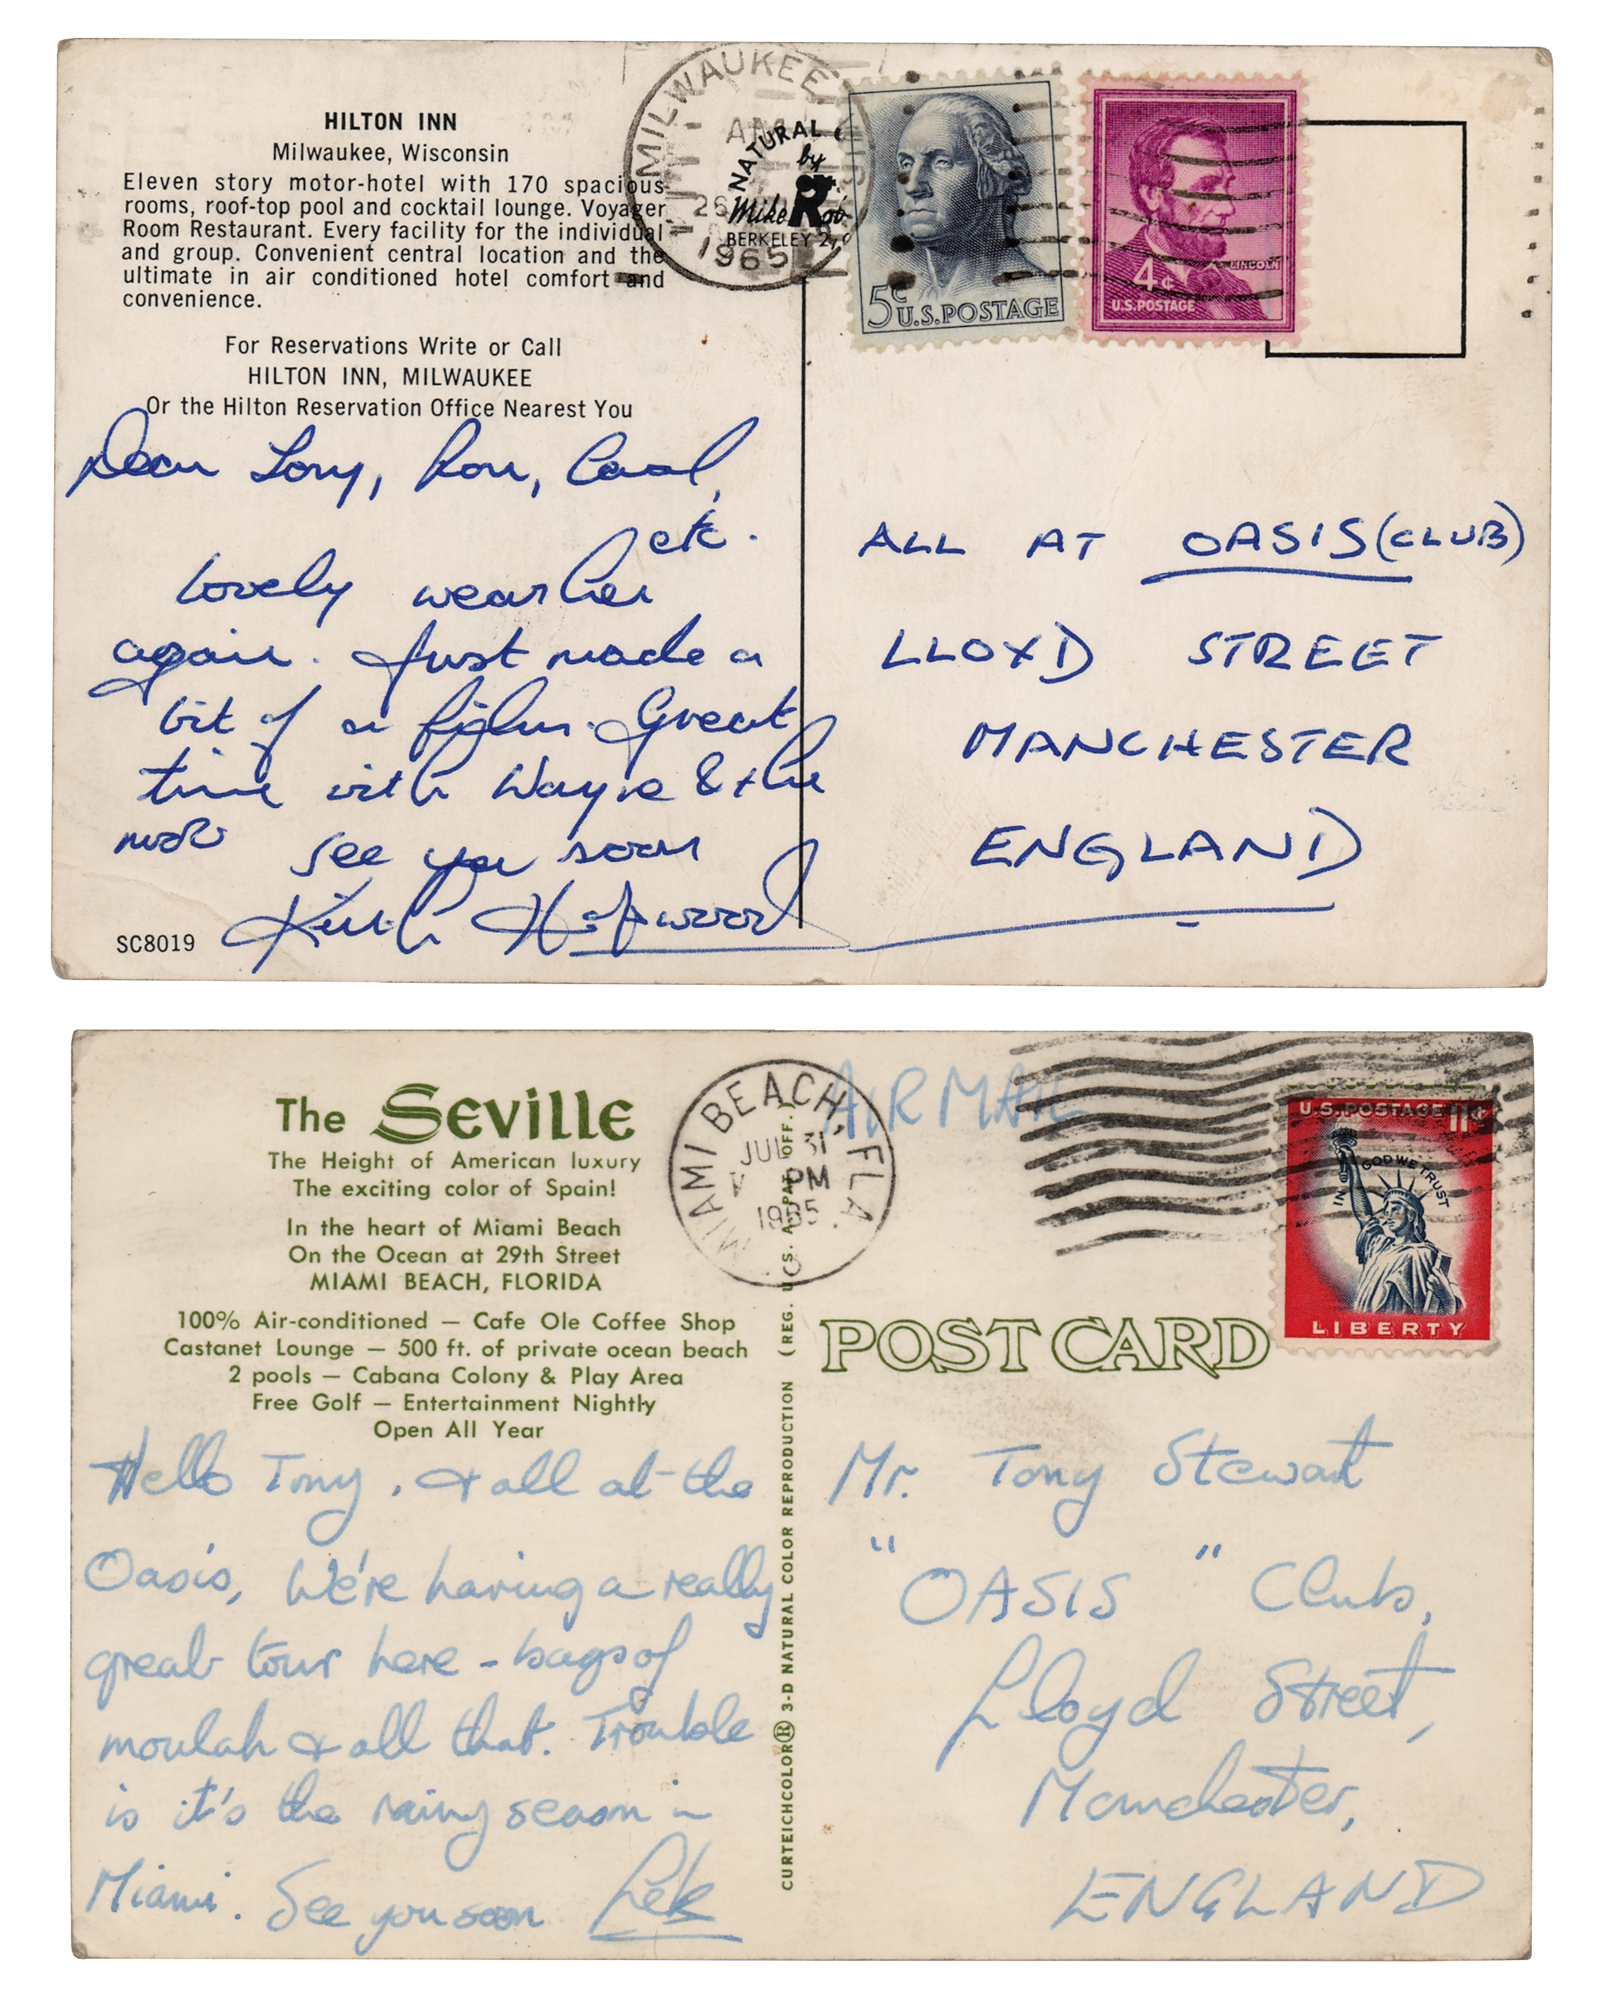 HILTON INN
Milwaukee, Wisconsin
Eleven story motor-hotel with 170 spacious
rooms, roof-top pool and cocktail lounge. Voyager
Room Restaurant. Every facility for the individual
and group. Convenient central location and the
ultimate in air conditioned hotel comfort and
convenience.
For Reservations Write or Call
HILTON INN, MILWAUKEE
Or the Hilton Reservation Office Nearest You
Dear Tony, Ron, Carol,
etc.
Lovely weather
again. Just made a
bit of a film. Great
time with Wayne & the
mob see you soon
Keith Hopwood
SC8019
MILWAUKEE
26
1965
NATURAL
by
Mike Rob
BERKELEY 2,
5c U.S. POSTAGE
LINCOLN
4c
U.S. POSTAGE
ALL AT OASIS (CLUB)
LLOYD STREET
MANCHESTER
ENGLAND
The Seville
The Height of American luxury
The exciting color of Spain!
In the heart of Miami Beach
On the Ocean at 29th Street
MIAMI BEACH, FLORIDA
100% Air-conditioned — Cafe Ole Coffee Shop
Castanet Lounge — 500 ft. of private ocean beach
2 pools — Cabana Colony & Play Area
Free Golf — Entertainment Nightly
Open All Year
Hello Tony, & all at the
Oasis, We're having a really
great tour here - bags of
moulah & all that. Trouble
is it's the rainy season in
Miami. See you soon Lek
CURTEICHCOLOR® 3-D NATURAL COLOR REPRODUCTION (REG. U.S.A. PAT. OFF.)
MIAMI BEACH, FLA.
JUL 31
PM
1965
AIRMAIL
U.S. POSTAGE 11c
IN GOD WE TRUST
LIBERTY
POST CARD
Mr. Tony Stewart
"OASIS" Club,
Lloyd Street,
Manchester,
ENGLAND